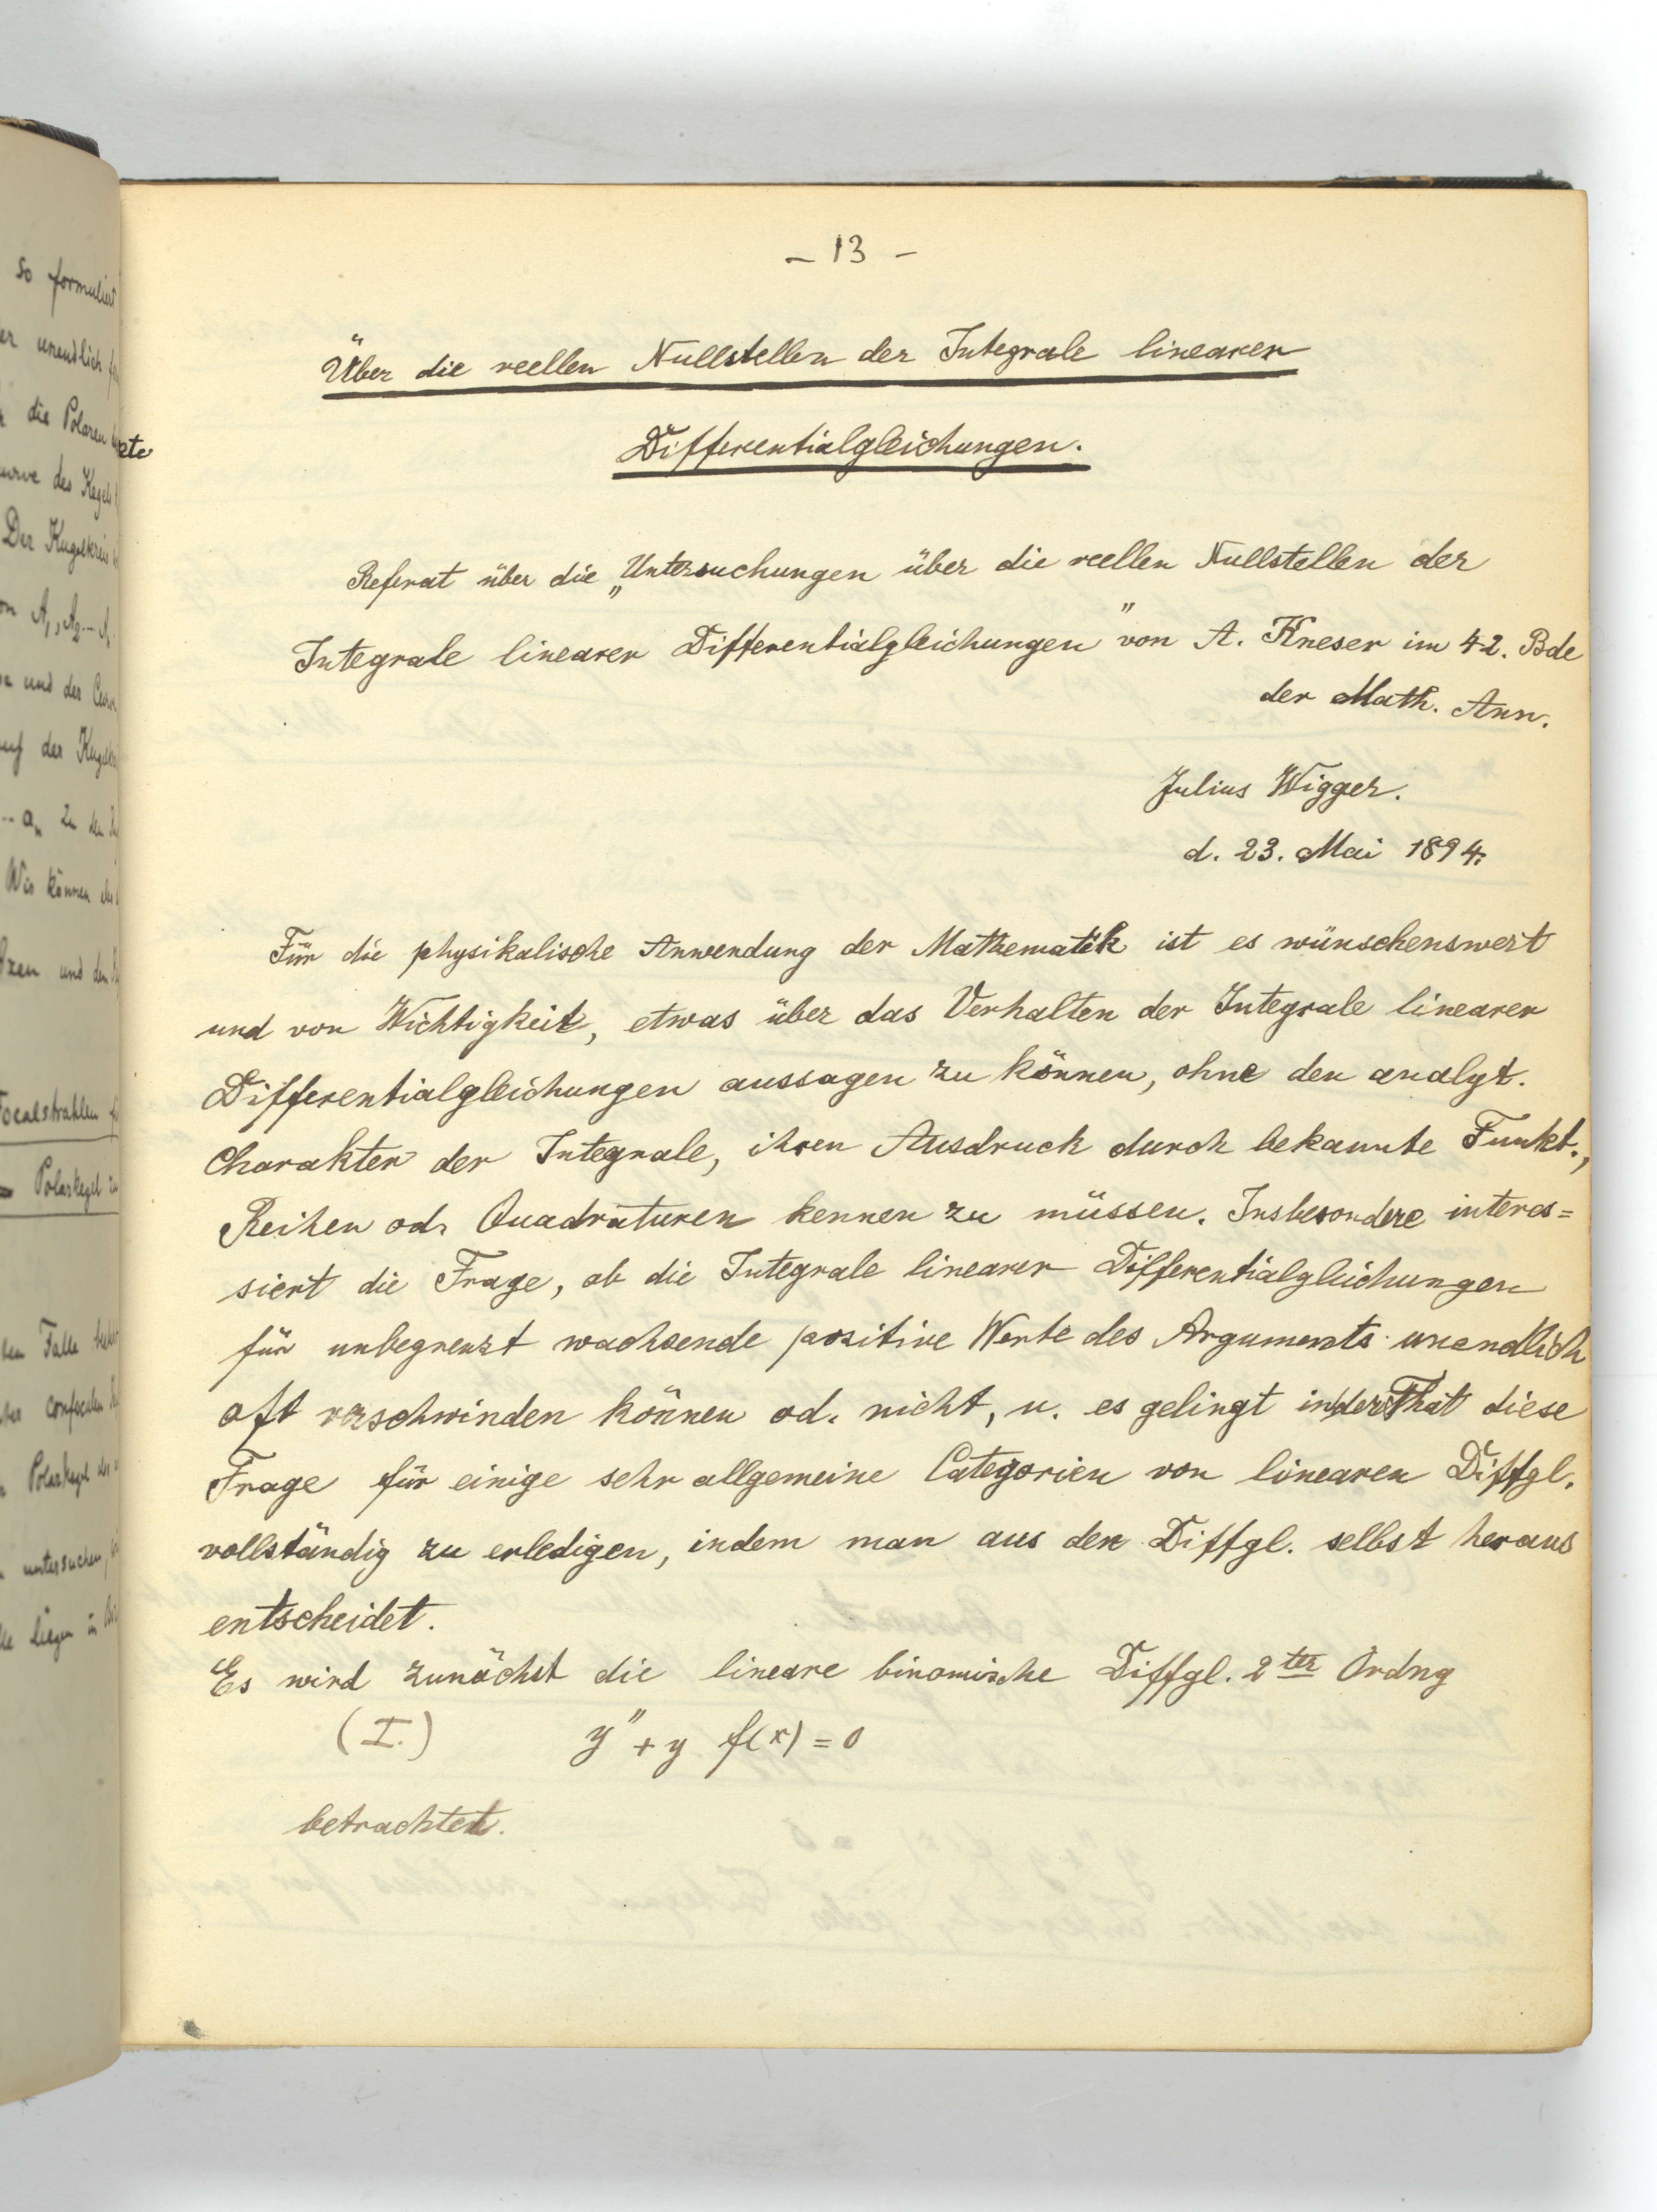 so formuliert
er unendlich
die Polaren
kte
urve des Kegels
Der Kugelkreis
on A₁, A₂ -- A
und der
auf der
-- aₙ zu den
Wir können
und den
Focalstrahlen
Polarkegel zu
len Falle
confocalen
Polarkegel des
untersuchen,
liegen in
– 13 –
Über die reellen Nullstellen der Integrale linearer
Differentialgleichungen.
Referat über die „Untersuchungen über die reellen Nullstellen der
Integrale linearer Differentialgleichungen" von A. Kneser im 42. Bde
der Math. Ann.
Julius Wigger.
d. 23. Mai 1894.
Für die physikalische Anwendung der Mathematik ist es wünschenswert
und von Wichtigkeit, etwas über das Verhalten der Integrale linearer
Differentialgleichungen aussagen zu können, ohne den analyt.
Charakter der Integrale, ihren Ausdruck durch bekannte Funkt.,
Reihen od. Quadraturen kennen zu müssen. Insbesondere interes=
siert die Frage, ob die Integrale linearer Differentialgleichungen
für unbegrenzt wachsende positive Werte des Arguments unendlich
oft verschwinden können od. nicht, u. es gelingt in der That diese
Frage für einige sehr allgemeine Categorien von linearen Diffgl.
vollständig zu erledigen, indem man aus der Diffgl. selbst heraus
entscheidet.
Es wird zunächst die lineare binomische Diffgl. 2ter Ordng
(I.) y'' + y f(x) = 0
betrachtet.